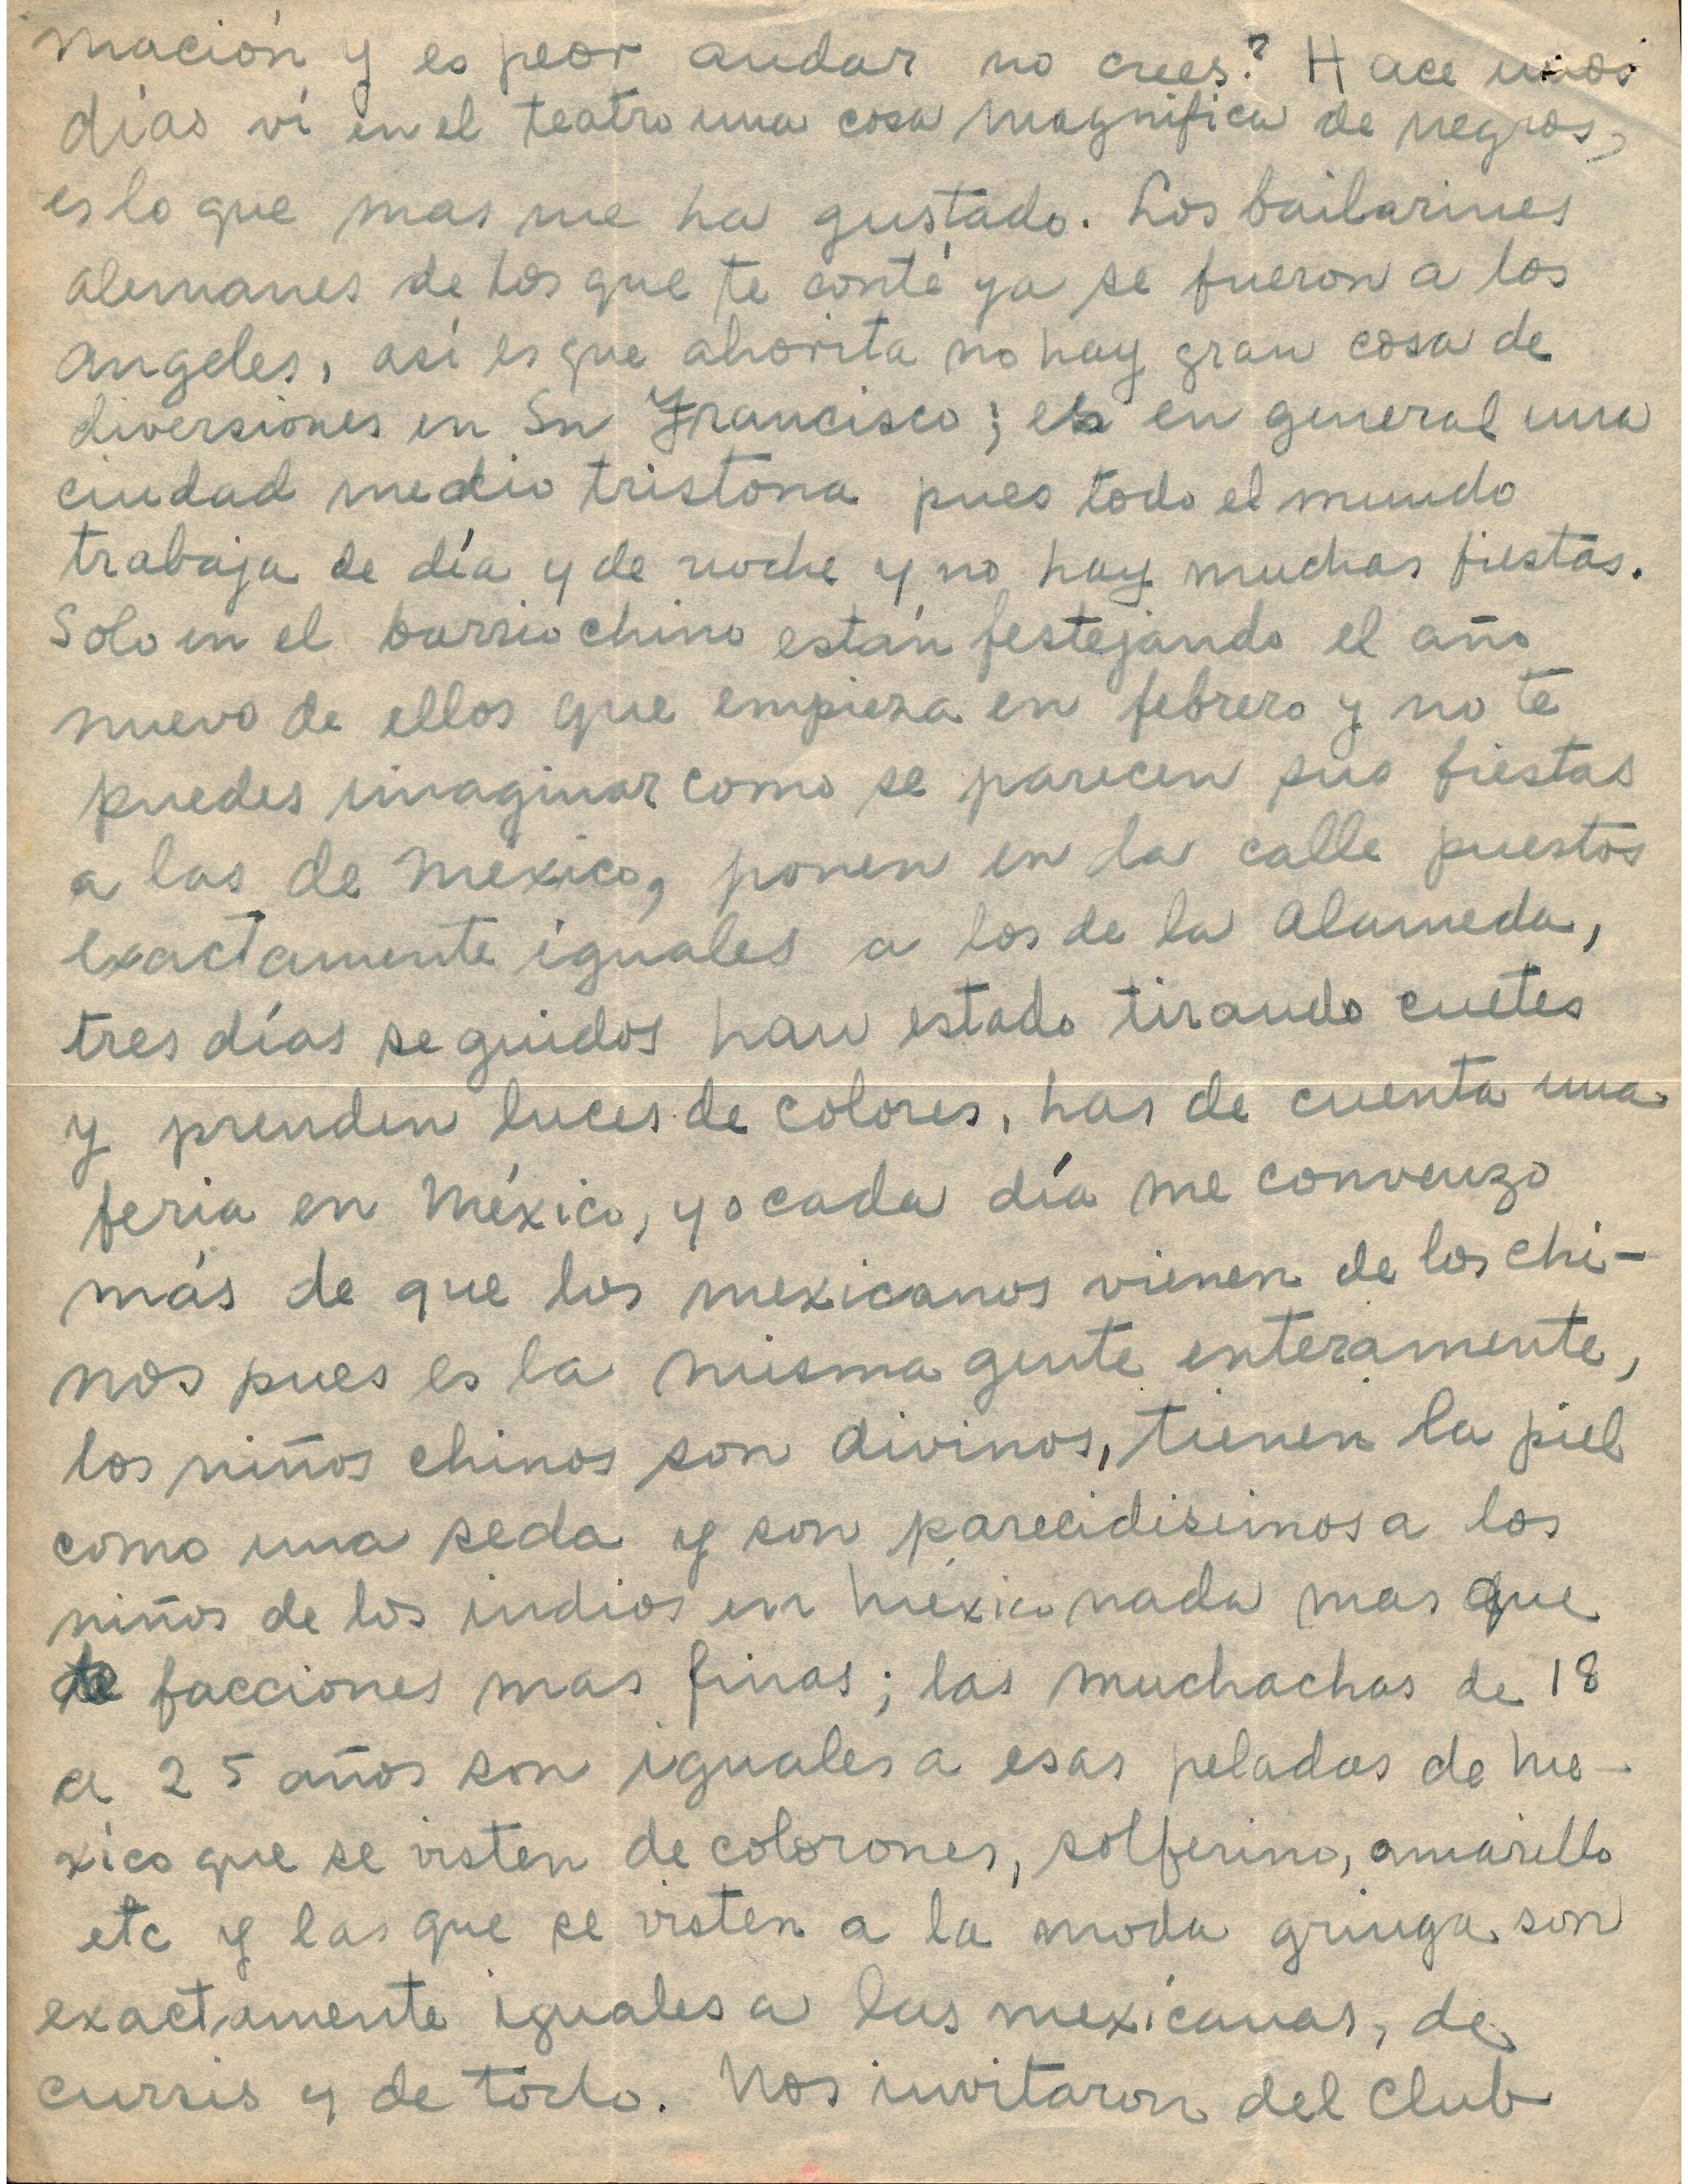 mación y es peor andar no crees? Hace unos
días ví en el teatro una cosa magnifica de negros,
es lo que mas me ha gustado. Los bailarines
alemanes de los que te conté ya se fueron a los
angeles, así es que ahorita no hay gran cosa de
diversiones en Sn Francisco; es en general una
ciudad medio tristona pues todo el mundo
trabaja de día y de noche y no hay muchas fiestas.
Solo en el barrio chino están festejando el año
nuevo de ellos que empieza en febrero y no te
puedes imaginar como se parecen sus fiestas
a las de México, ponen en la calle puestos
exactamente iguales a los de la Alameda,
tres días seguidos han estado tirando cuetes
y prenden luces de colores, has de cuenta una
feria en México, yo cada día me convenzo
más de que los mexicanos vienen de los chi-
nos pues es la misma gente enteramente,
los niños chinos son divinos, tienen la piel
como una seda y son parecidisimos a los
niños de los indios en México nada mas que
de facciones mas finas; las muchachas de 18
a 25 años son iguales a esas peladas de Me-
xico que se visten de colorones, solferino, amarillo
etc y las que se visten a la moda gringa son
exactamente iguales a las mexicanas, de
cursis y de todo. Nos invitaron del Club